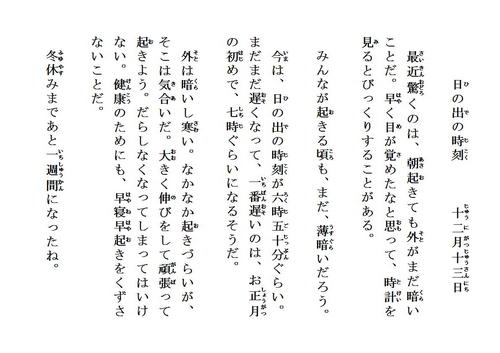 日の出の時刻　十二月十三日
最近驚くのは、朝起きても外がまだ暗い
ことだ。早く目が覚めたなと思って、時計を
見るとびっくりすることがある。
みんなが起きる頃も、まだ、薄暗いだろう。
今は、日の出の時刻が六時五十分ぐらい。
まだまだ遅くなって、一番遅いのは、お正月
の初めで、七時ぐらいになるそうだ。
外は暗いし寒い。なかなか起きづらいが、
そこは気合いだ。大きく伸びをして頑張って
起きよう。だらしなくなってしまってはいけ
ない。健康のためにも、早寝早起きをくずさ
ないことだ。
冬休みまであと一週間になったね。